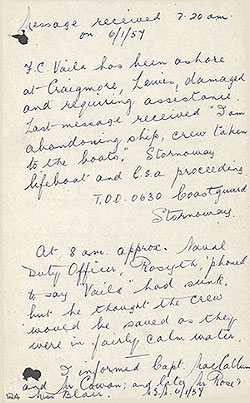 Message received 7.20 am.
on 6/1/57
F.C. Vaila has been ashore
at Craigmore, Lewis, damaged
and requiring assistance
Last message received "I am
abandoning ship, crew taken
to the boats," Stornoway
lifeboat and C.S.A. proceeding.
T.O.O. 0630 Coastguard
Stornoway.
At 8 am. approx. Naval
Duty Officer, Rosyth 'phoned
to say "Vaila" had sunk,
but he thought the crew
would be saved as they
were in fairly calm water.
I informed Capt. MacCallum
and Mr Cowan; and later Mr Rose
Miss Blair. 6/1/57